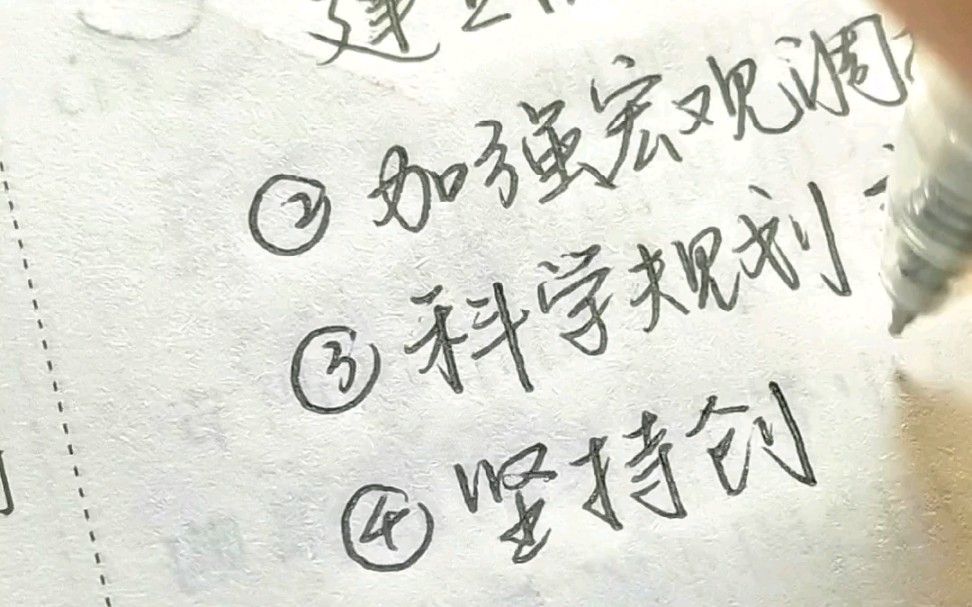 建立
② 加强宏观调
③ 科学规划
④ 坚持创